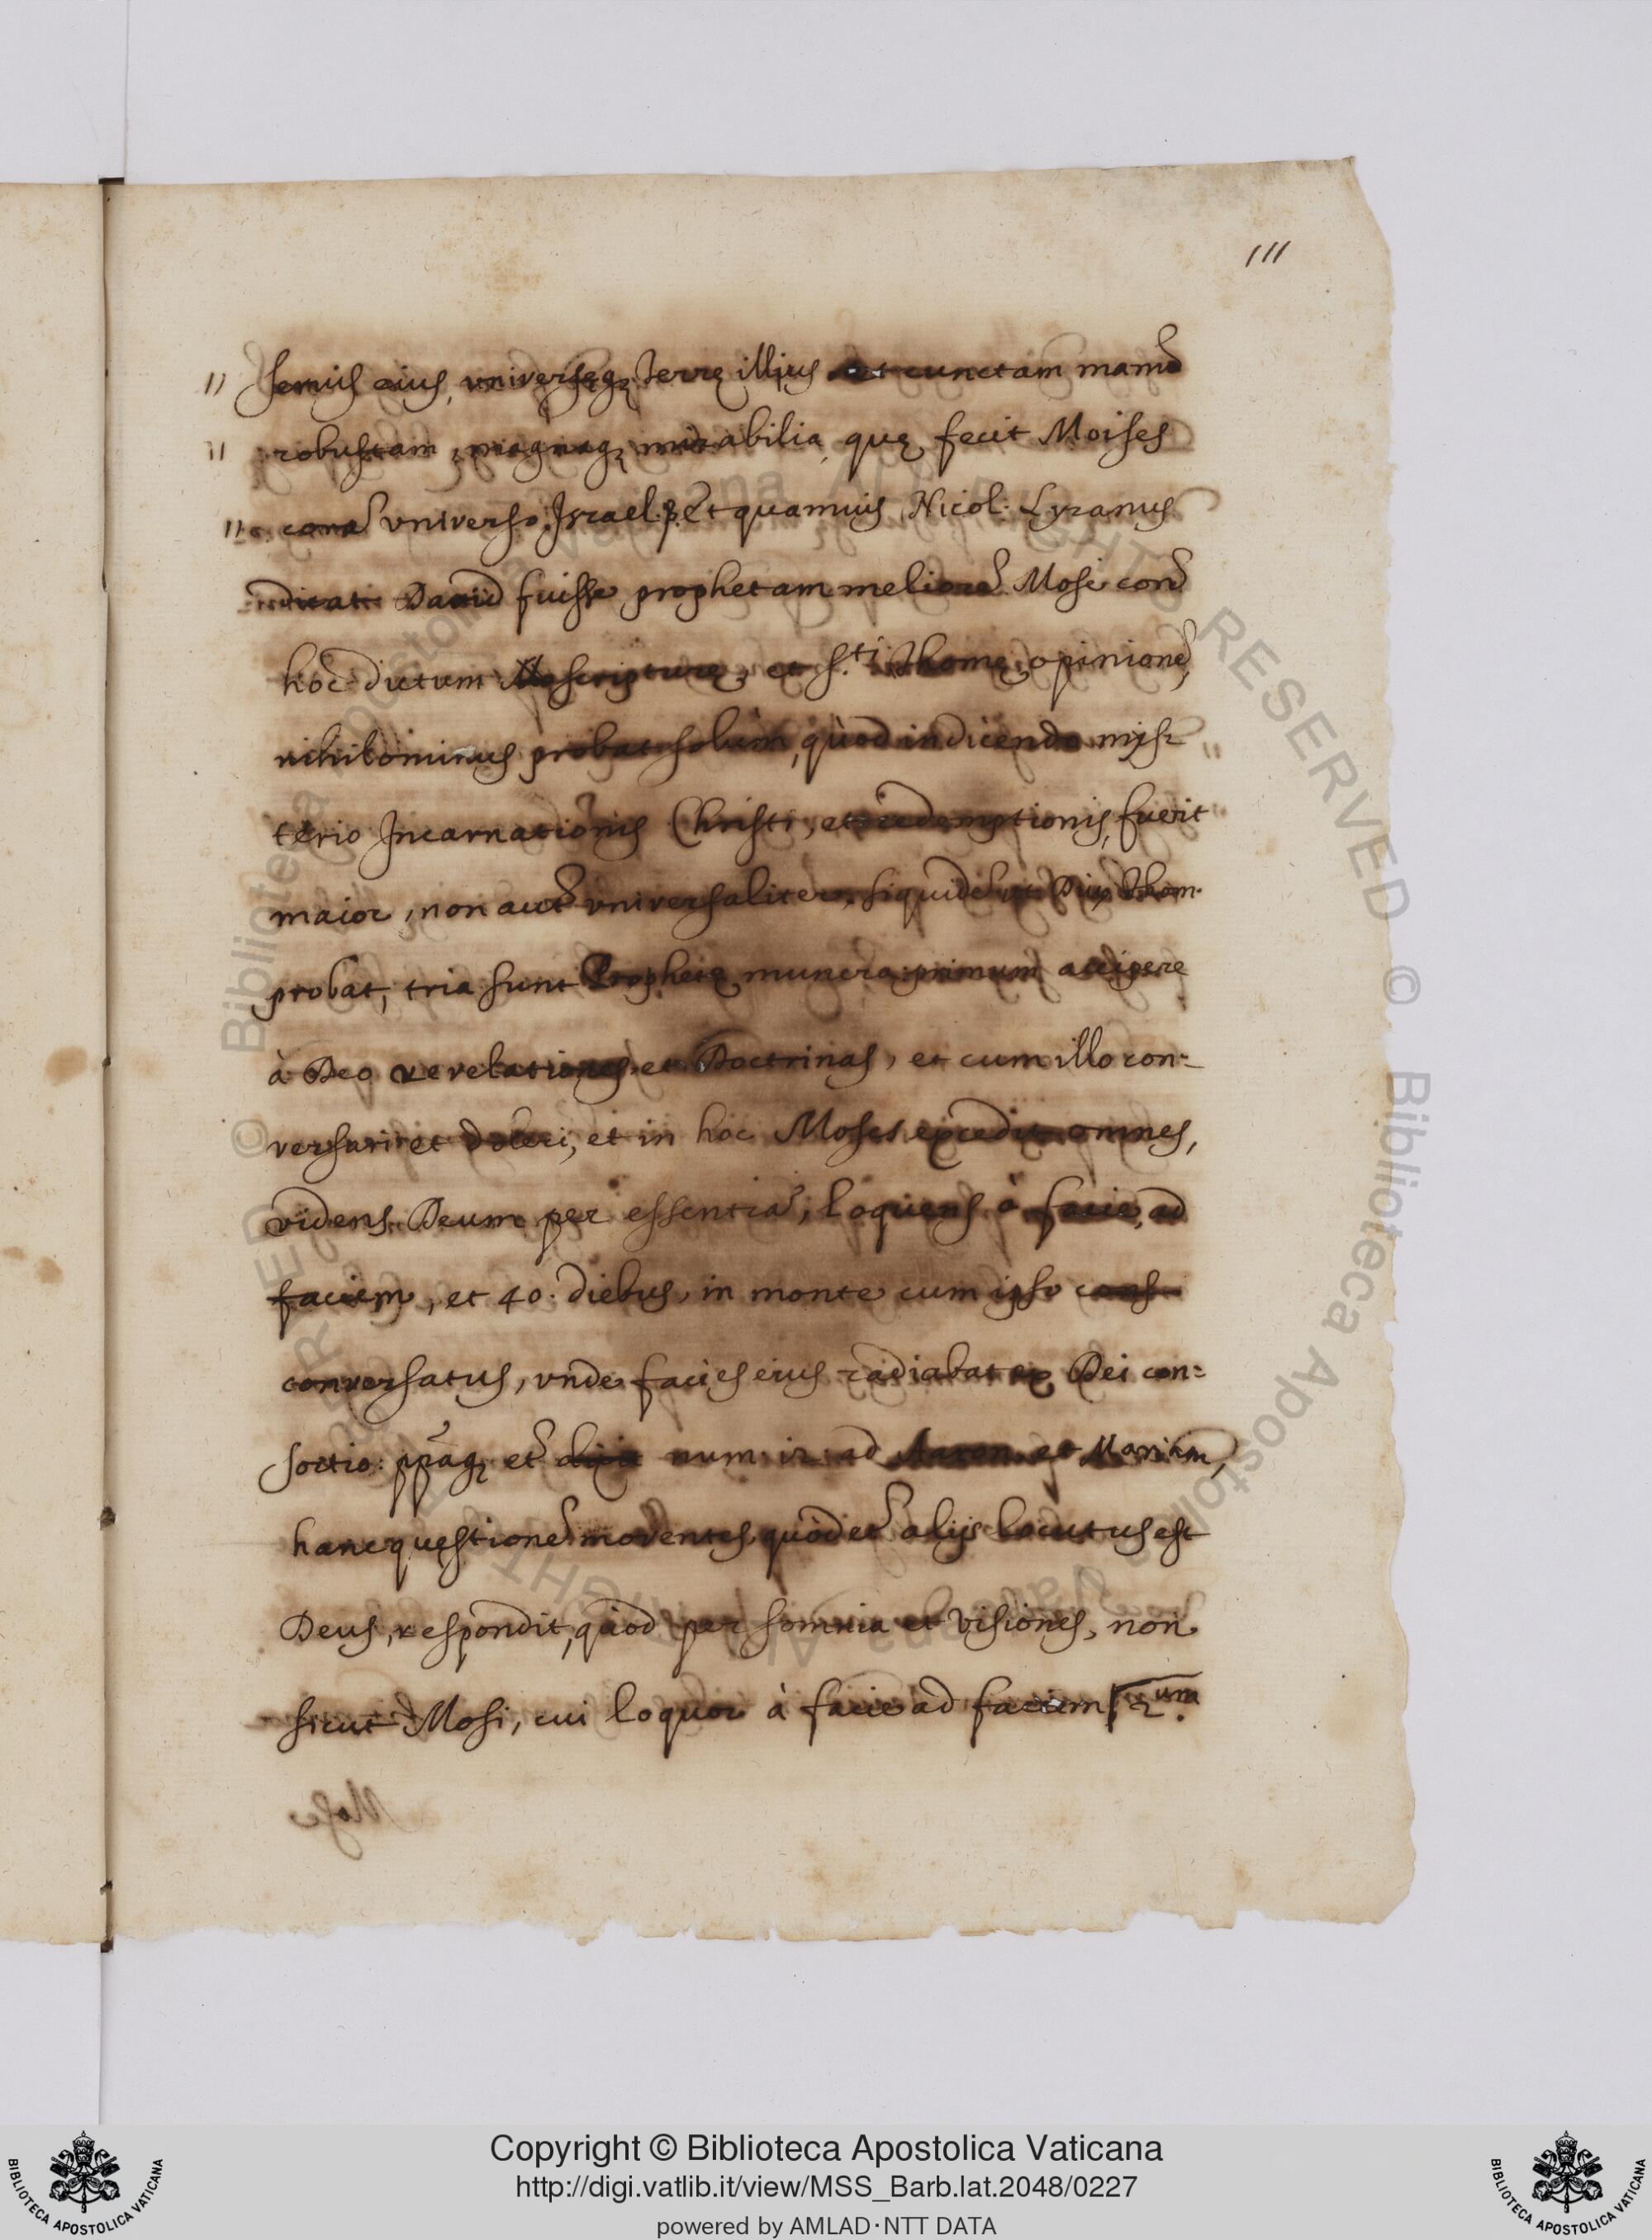 111
seruis eius, vniuersęq; terrę illius et cunctam manũ
robustam, magnaq; mirabilia, quę fecit Moises
corã vniverso Israel. Et quamuis Nicol: Lyranus
dicat Dauid fuisse prophetam meliorẽ Mose con̄
hoc dictum scripturę, et S.ti Thomę opinionẽ,
nihilominus probat solùm, quòd in dicendo mys-
terio Incarnationis Christi, et redemptionis, fuerit
maior, non aut̃ vniversaliter, siquidẽ ut Diu9 Thom.
probat, tria sunt Prophetę munera: primum accipere
à Deo revelationes et Doctrinas, et cum illo con-
versari et doceri, et in hoc Moses excedit omnes,
videns Deum per essentiã, loquens à facie, ad
faciem, et 40. diebus, in monte cum ipso cons
conversatus, vnde facies eius radiabat ex Dei con-
sortio: pp̃aq; et̃ dixit num. 12. ad Aaron et Mariam,
hanc quęstionẽ moventes, quòd et̃ alijs locutus est
Deus, respondit, quòd per somnia et visiones, non
sicut Mosi, cui loquor à facie ad faciem. 2.um
Copyright © Biblioteca Apostolica Vaticana
http://digi.vatlib.it/view/MSS_Barb.lat.2048/0227
powered by AMLAD·NTT DATA
BIBLIOTECA APOSTOLICA VATICANA
BIBLIOTECA APOSTOLICA VATICANA